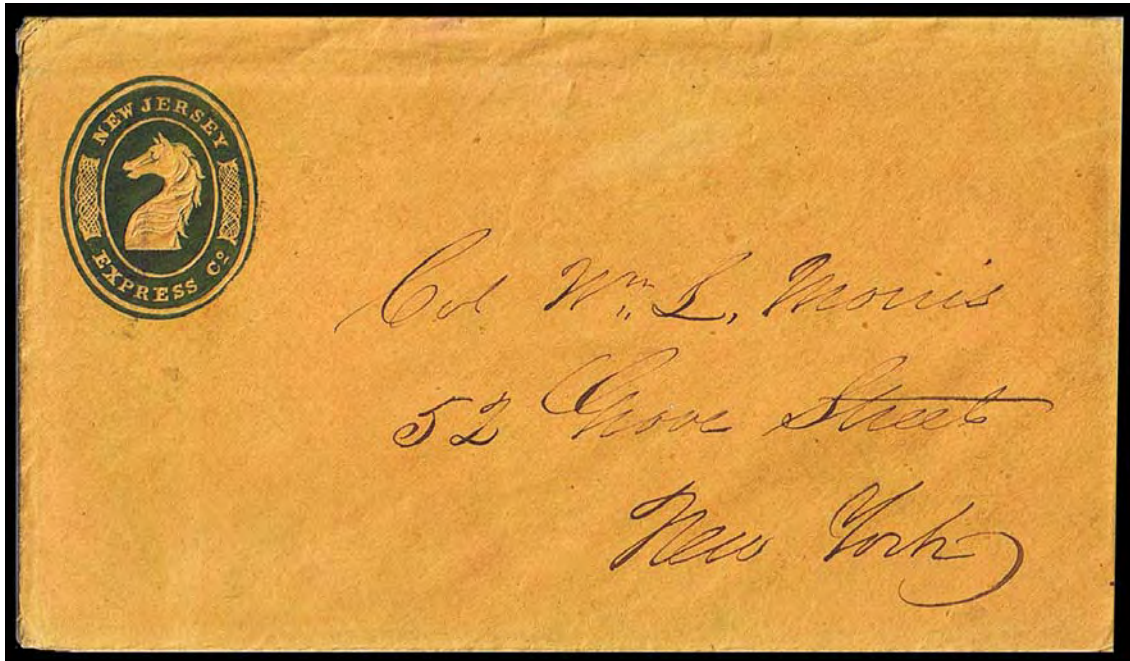 NEW JERSEY
EXPRESS Co
Col Wm. L. Morris
52 Grove Street
New York